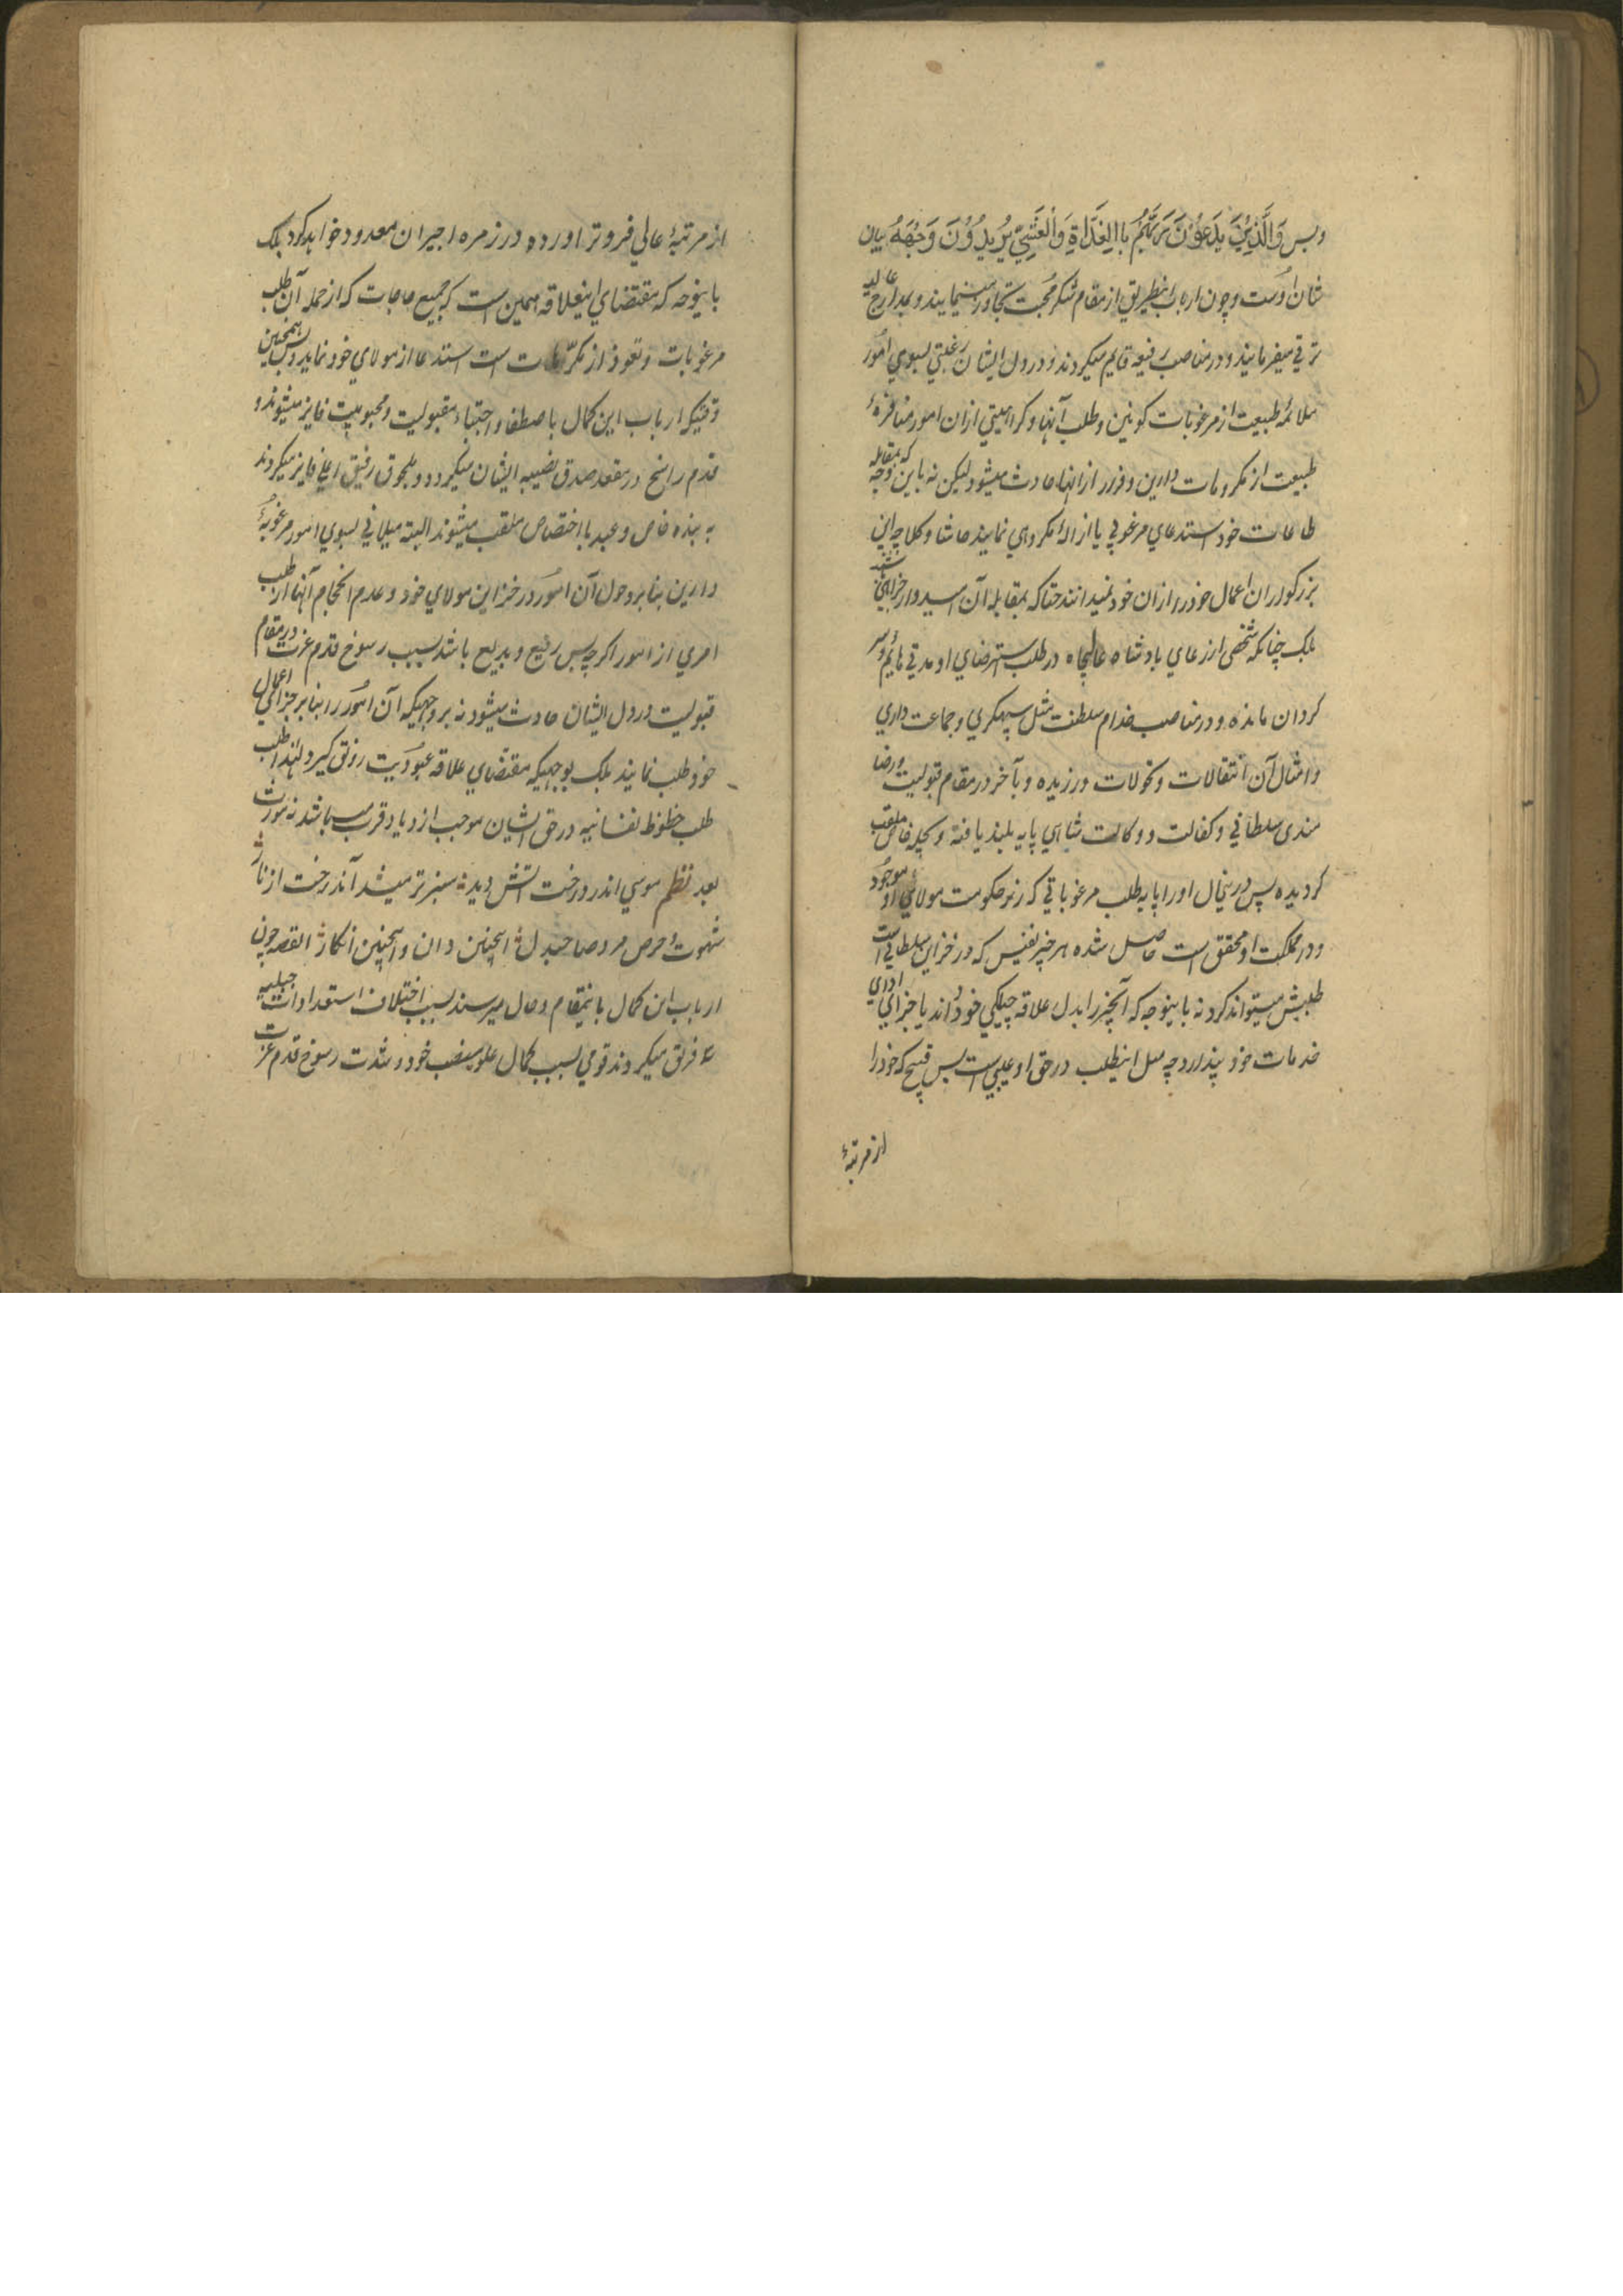 وبس وَالَّذِيْنَ يَدْعُوْنَ رَبَّهُمْ بِاالْغَدَاةِ وَالْعَشِيِّ يُرِيدُوْنَ وَجْهَهُ بيان
شان اوست وچون ارباب اينطريق از مقام شكر محبت تجاوز مينمايند و بمدارج عاليه
ترقي ميفرمايند و در مناصب رفيعه قايم ميكردند و در دل ايشان رغبتي بسوي امور
ملائمهٔ طبيعت از مرغوبات كونين و طلب آنها و كراهيتي ازان امور منافرهٔ
طبيعت از مكروهات دارين و فرار ازانها حادث ميشود ليكن نه باين وجه كه بمقابله
طاعات خود استدعاي مرغوبي يا ازالهٔ مكروهي نمايند حاشا وكلا چه اين
بزركواران اعمال خود را ازان خود نميدانند حتاكه بمقابله آن اميدوار جزاي باشند
بلك چنانكه شخصي از رعاي بادشاه عاليجاه در طلب استرضاي او مدتي هائم و سر
كردان مانده و در مناصب خدام سلطنت مثل سپهكري و جماعت داري
و امثال آن انتقالات و تحولات ورزيده و بآخر در مقام قبوليت و رضا
مندى سلطاني و كفالت و وكالت شاهي پايه بلند يافته و بچيله خاص ملقب
كرديده پس درينحال اورا پايه طلب مرغوباتي كه زير حكومت مولاي او موجود
و در مملكت او محقق است حاصل شده هر چيز نفيس كه در خزاين سلطاني است
طلبش ميتواند كرد نه باينوجه كه آنچيز را بدل علاقه چيلكي خود داند يا جزاي اداي
خدمات خود پندارد چه مثل اينطلب در حق او عيبي است بس قبيح كه خود را
از مرتبهٔ
از مرتبهٔ عالي فروتر اورده در زمره اجيران معدود خواهد كرد بلك
باينوجه كه مقتضاي اينعلاقه همين است كه جميع حاجات كه از جمله آن طلب
مرغوبات و تعوذ از مكروهات است استدعا از مولاي خود نمايد پس همچنين
وقتيكه ارباب اين كمال باصطفا و اجتباء مقبوليت و محبوبيت فايز ميشوند و
قدم راسخ در مقعد صدق نصيبه ايشان ميكردد و بلحوق رفيق اعلي فايز ميكردند
به بنده خاص و عبد با اختصاص ملقب ميشوند البته ميلاني بسوي امور مرغوبهٔ
دارين بنا بر دخول آن امور در خزاين مولاي خود و عدم انحجام آنها از طلب
امري از امور اكرچه بس رفيع و بديع باشد بسبب رسوخ قدم عزت در مقام
قبوليت در دل ايشان حادث ميشود نه بر وجهيكه آن امور را بنا بر جزاي اعمال
خود طلب نمايند بلك بوجهيكه مقتضاي علاقه عبوديت رونق كيرد لهذا طلب
طلب حظوظ نفسانيه در حق ايشان موجب ازدياد قرب ميباشد نه مورث
بعد نظم موسي اندر درخت اتش ديد سبزتر ميشد آندرخت از نار
شهوت و حرص مرد صاحبدل اينچنين دان و اينچنين انكار القصه چون
ارباب اين كمال باينمقام وحال ميرسند بسبب اختلاف استعدادات جبليه
سه فريق ميكردند قومي بسبب كمال علو منصب خود و شدت رسوخ قدم عزت